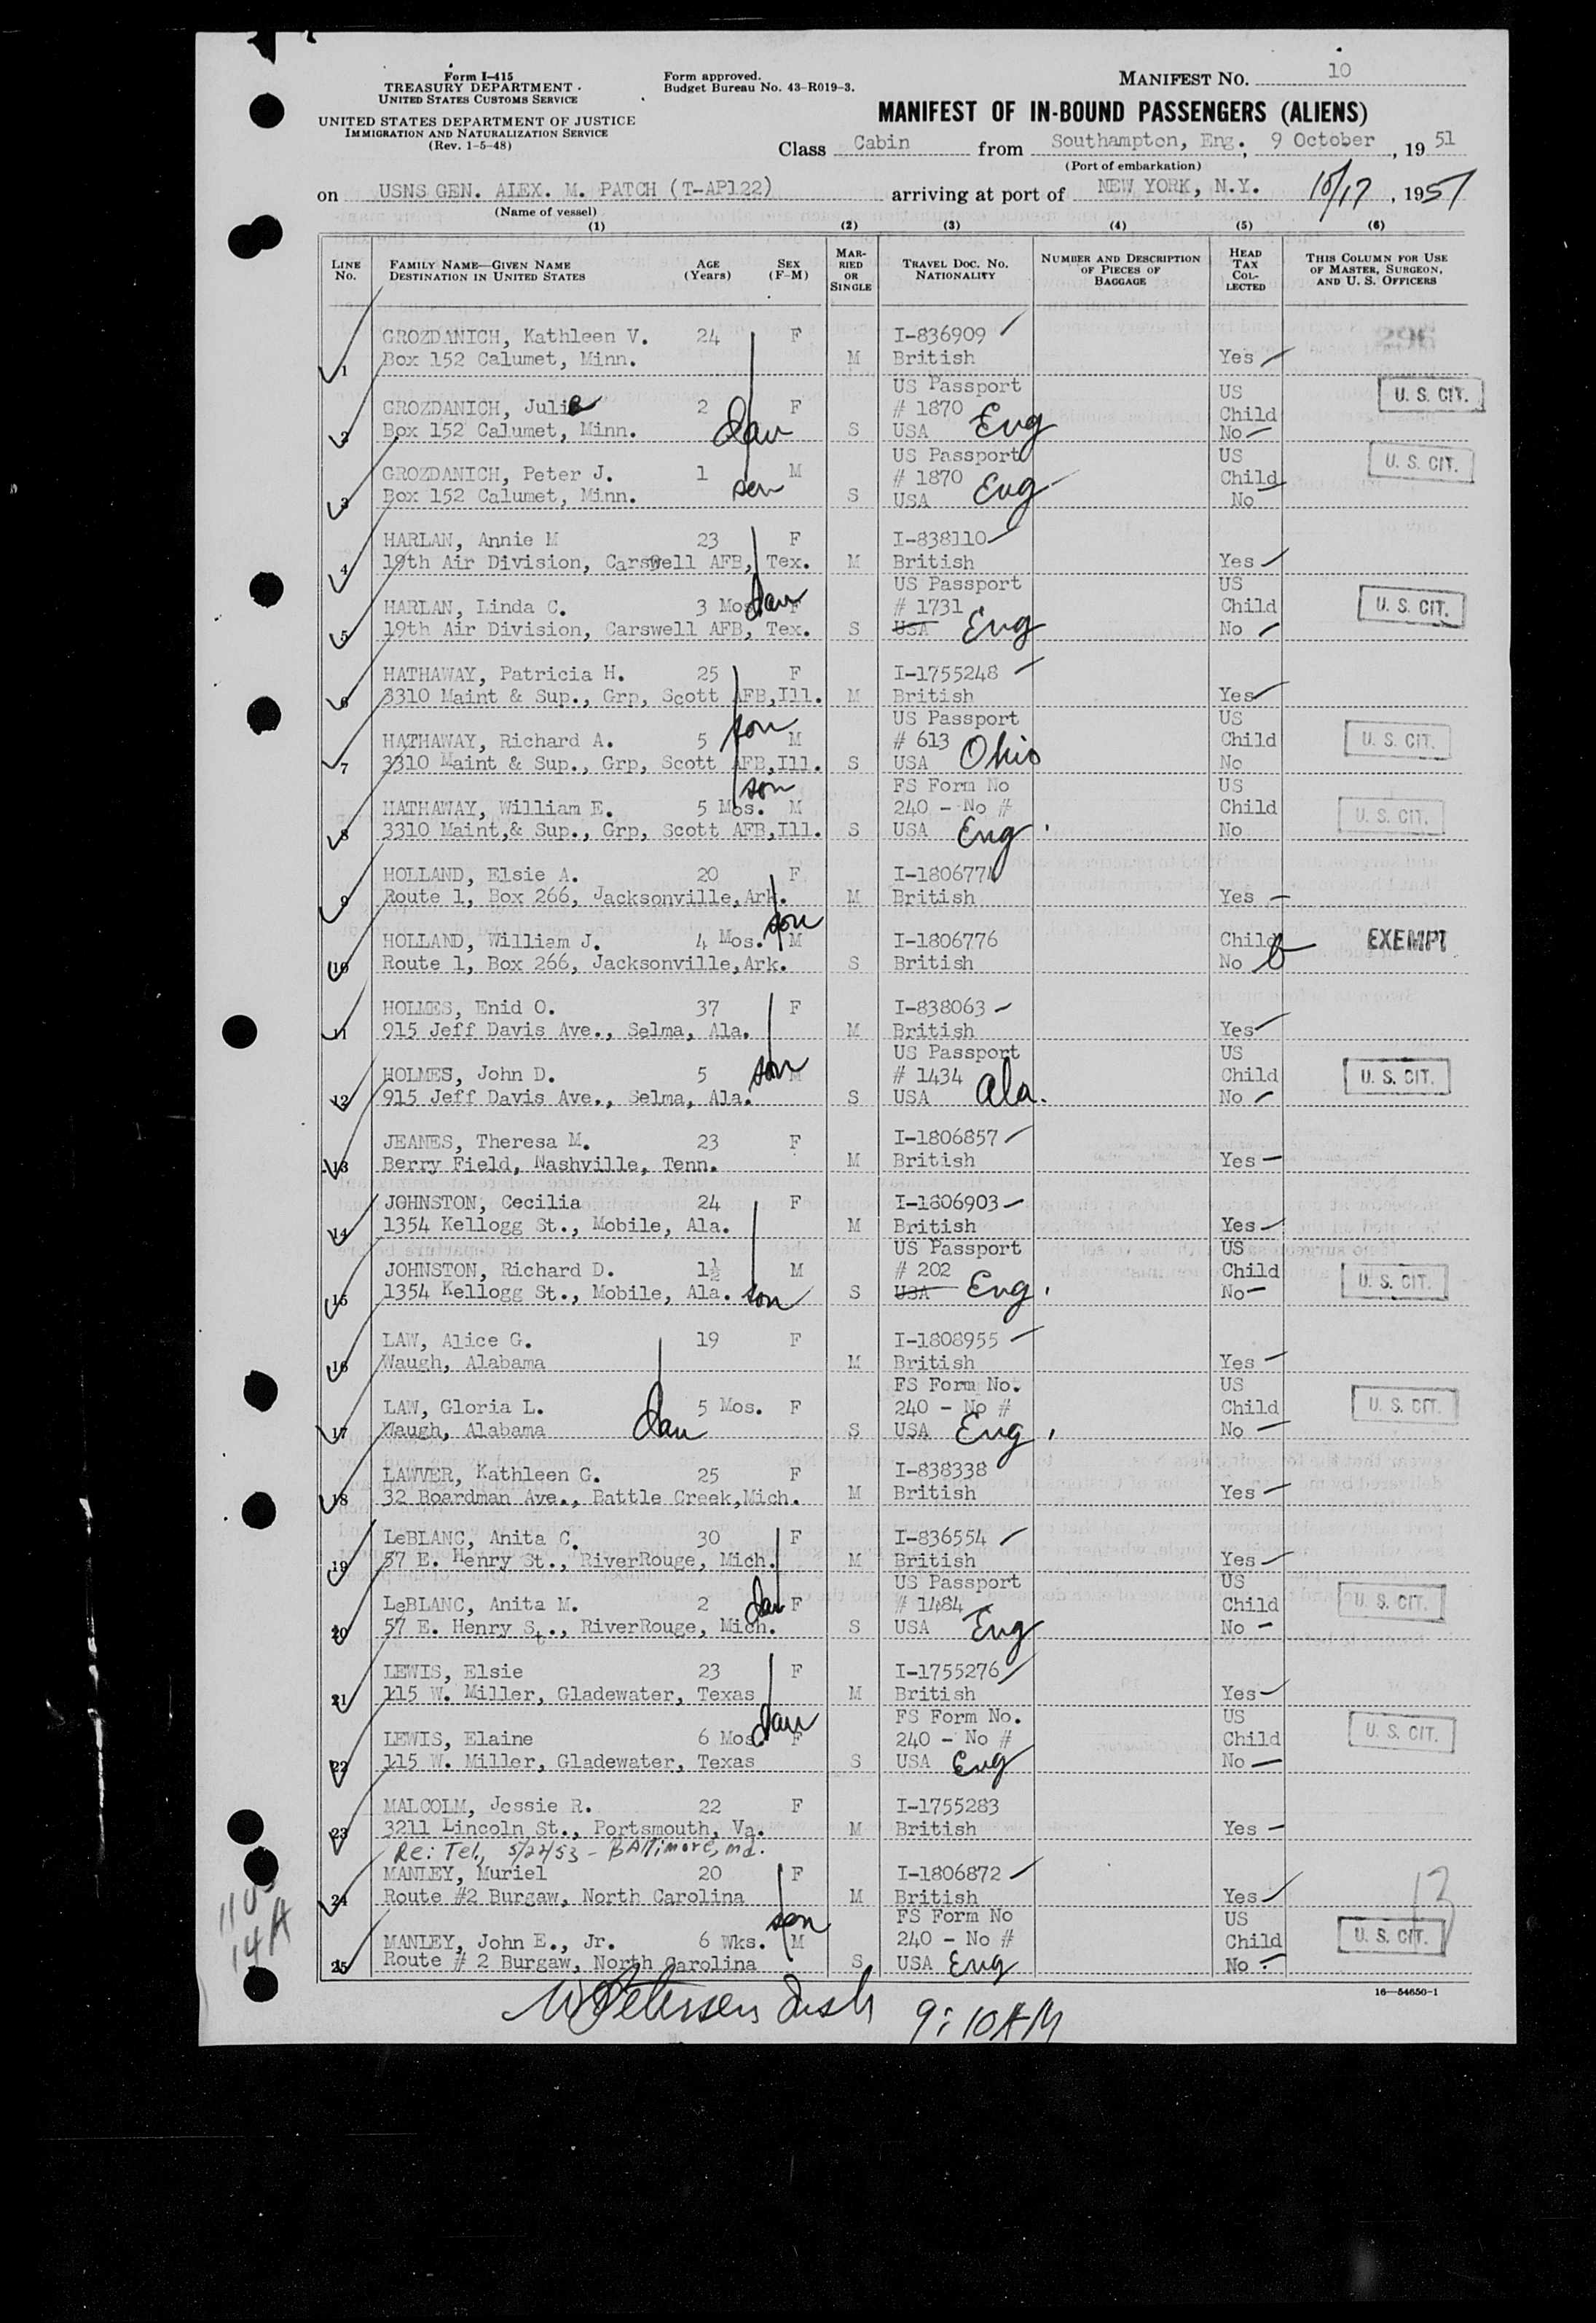 Form I-415
TREASURY DEPARTMENT
UNITED STATES CUSTOMS SERVICE
UNITED STATES DEPARTMENT OF JUSTICE
IMMIGRATION AND NATURALIZATION SERVICE
(Rev. 1-5-48)
Form approved.
Budget Bureau No. 43-R019-3.
MANIFEST NO. 10
MANIFEST OF IN-BOUND PASSENGERS (ALIENS)
Class Cabin from Southampton, Eng., 9 October, 19 51
(Port of embarkation)
on USNS GEN. ALEX. M. PATCH (T-AP122) arriving at port of NEW YORK, N.Y. 10/17, 1951
(Name of vessel)
(1) (2) (3) (4) (5) (6)
LINE No. FAMILY NAME—GIVEN NAME DESTINATION IN UNITED STATES AGE (Years) SEX (F-M) MARRIED OR SINGLE TRAVEL DOC. NO. NATIONALITY NUMBER AND DESCRIPTION OF PIECES OF BAGGAGE HEAD TAX COLLECTED THIS COLUMN FOR USE OF MASTER, SURGEON, AND U. S. OFFICERS
GROZDANICH, Kathleen V. 24 F I-836909
1 Box 152 Calumet, Minn. M British Yes
US Passport US U. S. CIT.
GROZDANICH, Julie 2 F # 1870 Child
2 Box 152 Calumet, Minn. dau S USA Eng No
US Passport US U. S. CIT.
GROZDANICH, Peter J. 1 M # 1870 Child
3 Box 152 Calumet, Minn. son S USA Eng No
HARLAN, Annie M 23 F I-838110
4 19th Air Division, Carswell AFB, Tex. M British Yes
US Passport US
HARLAN, Linda C. 3 Mos. dau F # 1731 Child U. S. CIT.
5 19th Air Division, Carswell AFB, Tex. S USA Eng No
HATHAWAY, Patricia H. 25 F I-1755248
6 3310 Maint & Sup., Grp, Scott AFB,Ill. M British Yes
son US Passport US
HATHAWAY, Richard A. 5 M # 613 Child U. S. CIT.
7 3310 Maint & Sup., Grp, Scott AFB,Ill. S USA Ohio No
son FS Form No US
HATHAWAY, William E. 5 Mos. M 240 - No # Child U. S. CIT.
8 3310 Maint,& Sup., Grp, Scott AFB,Ill. S USA Eng No
HOLLAND, Elsie A. 20 F I-1806774
9 Route 1, Box 266, Jacksonville,Ark. M British Yes
HOLLAND, William J. 4 Mos. son M I-1806776 Child EXEMPT
10 Route 1, Box 266, Jacksonville,Ark. S British No
HOLMES, Enid O. 37 F I-838063
11 915 Jeff Davis Ave., Selma, Ala. M British Yes
US Passport US
HOLMES, John D. 5 son M # 1434 Child U. S. CIT.
12 915 Jeff Davis Ave., Selma, Ala. S USA Ala. No
JEANES, Theresa M. 23 F I-1806857
13 Berry Field, Nashville, Tenn. M British Yes
JOHNSTON, Cecilia 24 F I-1806903
14 1354 Kellogg St., Mobile, Ala. M British Yes
US Passport US
JOHNSTON, Richard D. 1½ M # 202 Child U. S. CIT.
15 1354 Kellogg St., Mobile, Ala. son S USA Eng. No
LAW, Alice G. 19 F I-1808955
16 Waugh, Alabama M British Yes
FS Form No. US
LAW, Gloria L. 5 Mos. F 240 - No # Child U. S. CIT.
17 Waugh, Alabama dau S USA Eng No
LAWVER, Kathleen G. 25 F I-838338
18 32 Boardman Ave., Battle Creek,Mich. M British Yes
LeBLANC, Anita C. 30 F I-836554
19 57 E. Henry St., RiverRouge, Mich. M British Yes
US Passport US
LeBLANC, Anita M. 2 dau F # 1484 Child U. S. CIT.
20 57 E. Henry St., RiverRouge, Mich. S USA Eng No
LEWIS, Elsie 23 F I-1755276
21 115 W. Miller, Gladewater, Texas M British Yes
FS Form No. US
LEWIS, Elaine 6 Mos. dau F 240 - No # Child U. S. CIT.
22 115 W. Miller, Gladewater, Texas S USA Eng No
MALCOLM, Jessie R. 22 F I-1755283
23 3211 Lincoln St., Portsmouth, Va. M British Yes
Re: Tel., 5/27/53 - BAltimore, Md.
MANLEY, Muriel 20 F I-1806872
24 Route #2 Burgaw, North Carolina M British Yes 13
son FS Form No US
MANLEY, John E., Jr. 6 Wks. M 240 - No # Child U. S. CIT.
25 Route # 2 Burgaw, North Carolina S USA Eng No
11 US
14A
16—54650-1
9:10AM